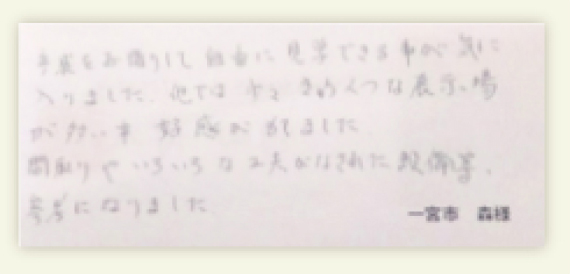 手袋をお借りして 自由に見学できる事が 気に
入りました. 他では 少々 きゅうくつな展示場
が多い中 好感が もてました
間取りや いろいろな工夫がなされた設備等、
参考になりました
一宮市 森様